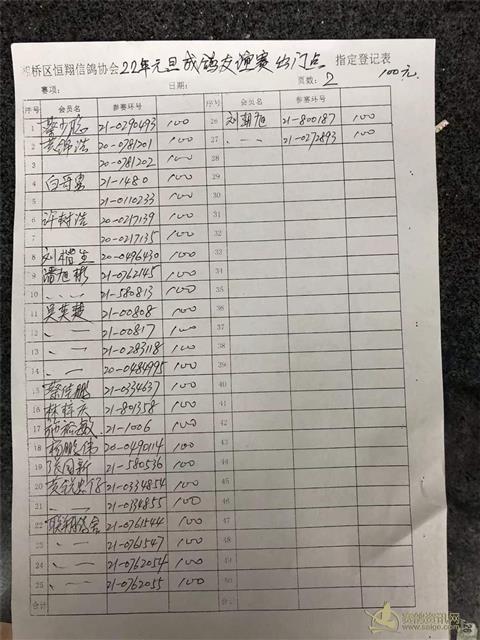 桥区恒翔信鸽协会22年元旦成鸽友谊赛出门点 指定登记表
赛项: 日期: 页数: 2 100元
序号 会员名 参赛环号 序号 会员名 参赛环号
1 21-0290493 100 26 刘朝旭 21-800187 100
2 黄锦浩 20-0781201 100 27 〃 21-0272893 100
3 20-0781202 100 28
4 白哥 21-1480 100 29
5 21-0110233 100 30
6 许树浩 20-0217139 100 31
7 20-0217135 100 32
8 刘楷生 20-0496430 100 33
9 潘旭彬 21-0762145 100 34
10 〃 21-580813 100 35
11 吴英楚 21-00808 100 36
12 〃 21-00817 100 37
13 〃 21-0283118 100 38
14 〃 20-0484995 100 39
15 蔡佳鹏 21-0334637 100 40
16 林梓庆 21-801358 100 41
17 21-1006 100 42
18 杨鹏伟 20-0490114 100 43
19 张周新 21-580536 100 44
20 21-0334854 100 45
21 〃 21-0334855 100 46
22 联翔鸽舍 21-0761544 100 47
23 〃 21-0761547 100 48
24 〃 21-0762054 100 49
25 〃 21-0762055 100 50
合计 合:
赛鸽资讯网
www.saige.com